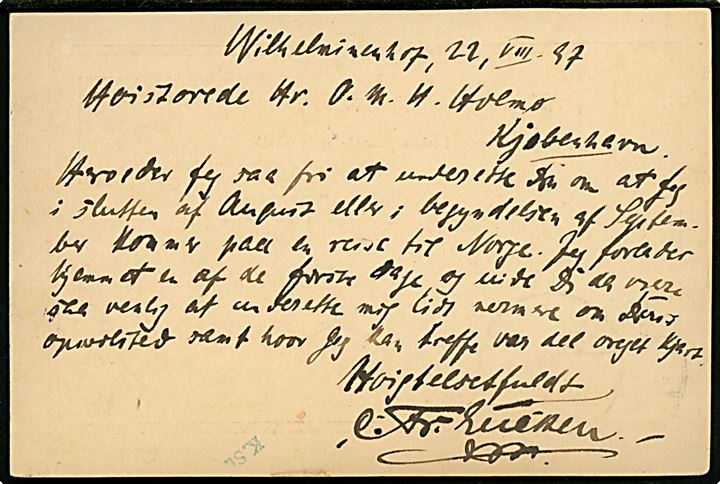 Wilhelminenhof, 22, VIII. 87
Høistærede Hr. O. M. H. Holme
Kjøbenhavn.
Herved er Jeg saa fri at underette Dem om at Jeg
i slutten af August eller i begyndelsen af Septem-
ber kommer paa en reise til Norge. Jeg forlader
hjemmet en af de første dage og vilde De da være
saa venlig at underette mig lidt nermere om Deres
opholsted samt hvor Jeg kan treffe var det meget kjert
Høigtelsetfuldt
C. Fr. Eucken.
K. St.